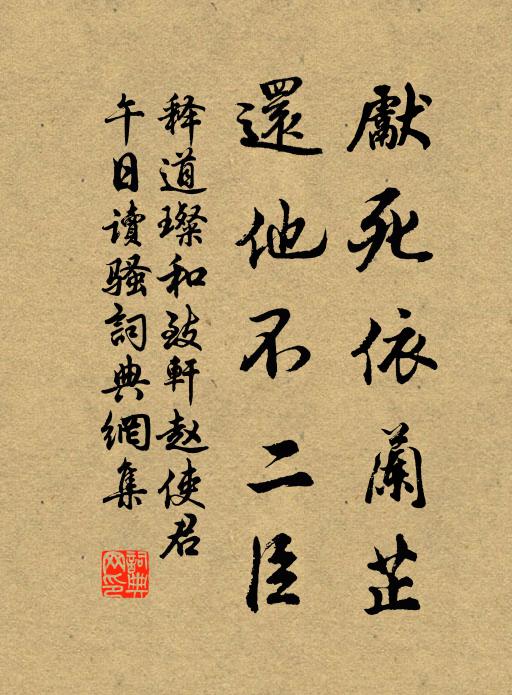 獻死依蘭芷
還他不二臣
释道璨和致軒赵使君
午日讀騷詞典網集
詞典網印